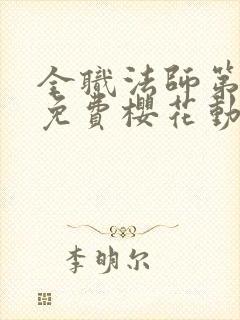 全職法師第
免費櫻花動
李明尔